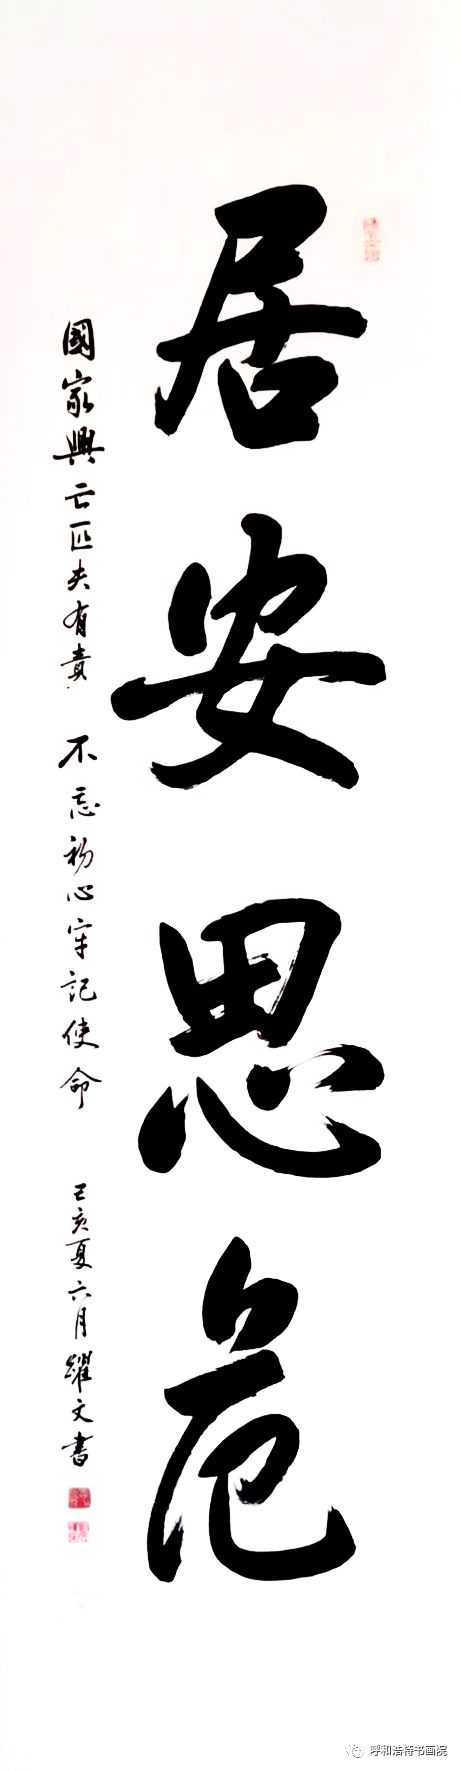 居安思危
國家興亡匹夫有責 不忘初心牢記使命 己亥夏六月耀文書
呼和浩特书画院